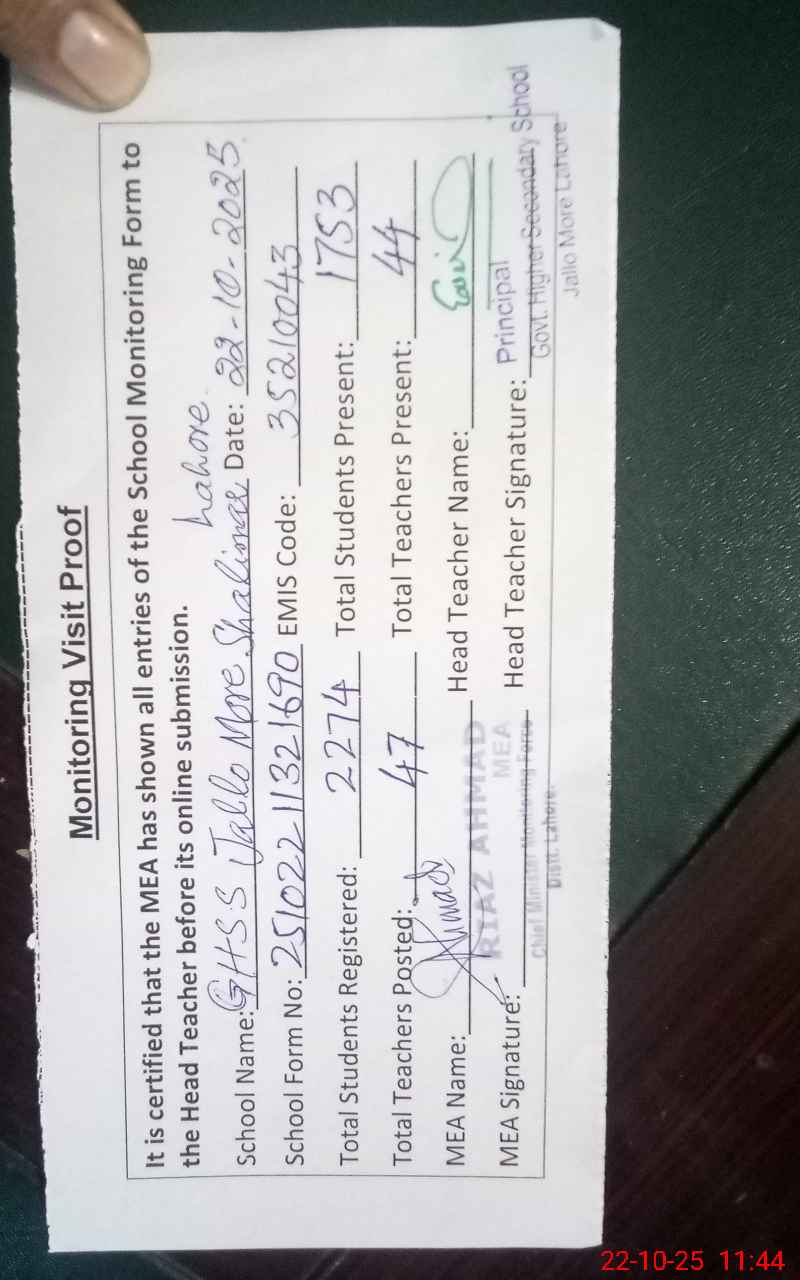 Monitoring Visit Proof
It is certified that the MEA has shown all entries of the School Monitoring Form to
the Head Teacher before its online submission.
Lahore.
School Name: GHSS Jallo More Shalimar Date: 22-10-2025
School Form No: 251022 11321690 EMIS Code: 35210043
Total Students Registered: 2274 Total Students Present: 1753
Total Teachers Posted: 47 Total Teachers Present: 44
MEA Name: Head Teacher Name:
RIAZ AHMAD
MEA
Principal
MEA Signature: Head Teacher Signature:
Chief Minister Monitoring Force
Distt. Lahore.
Govt. Higher Secondary School
Jallo More Lahore
22-10-25 11:44